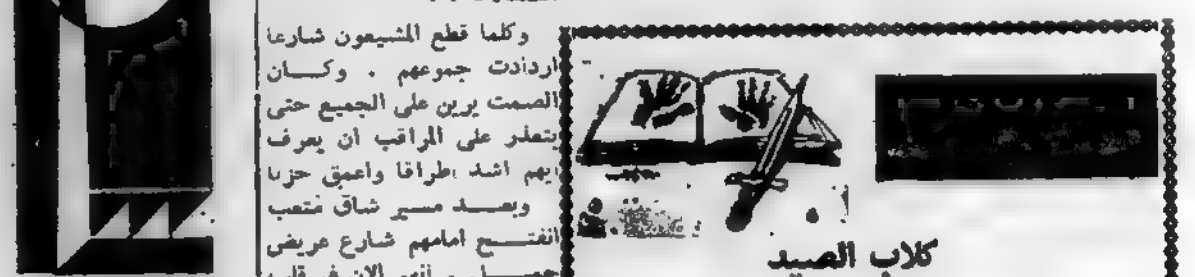 وكلما قطع المشيعون شارعا
ازدادت جموعهم . وكـــان
الصمت يرين على الجميع حتى
يتعذر على المراقب ان يعرف
ايهم اشد اطراقا واعمق حزنا
وبعـــد مسـير شاق متعب
انفتـــح امامهم شارع عريض
كلاب الصيد